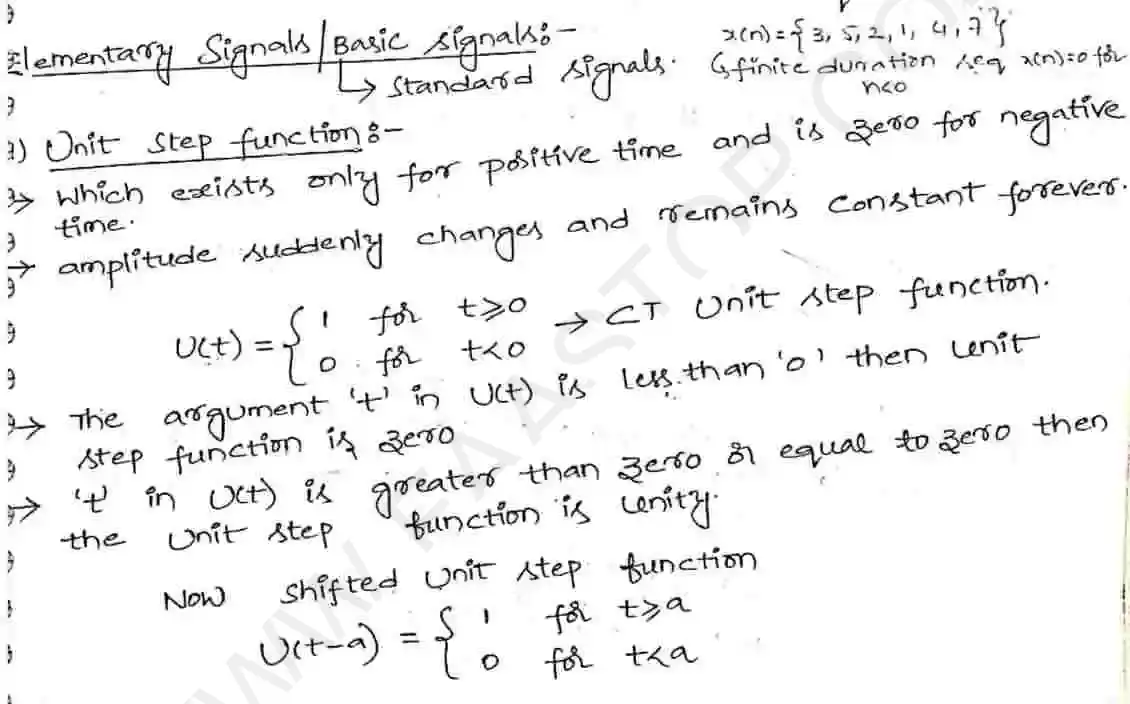 Elementary Signals/Basic signals:-
↳ Standard signals.
x(n)={3, 5, 2, 1, 4, 7}
↳ finite duration seq x(n)=0 for
n<0
1) Unit step function:-
→ Which exists only for positive time and is zero for negative
time.
→ amplitude suddenly changes and remains constant forever.
U(t) = { 1 for t≥0
0 for t<0 → CT Unit step function.
→ The argument 't' in U(t) is less than 'o' then unit
step function is zero
→ 't' in U(t) is greater than zero or equal to zero then
the unit step function is unity.
Now shifted unit step function
U(t-a) = { 1 for t≥a
0 for t<a